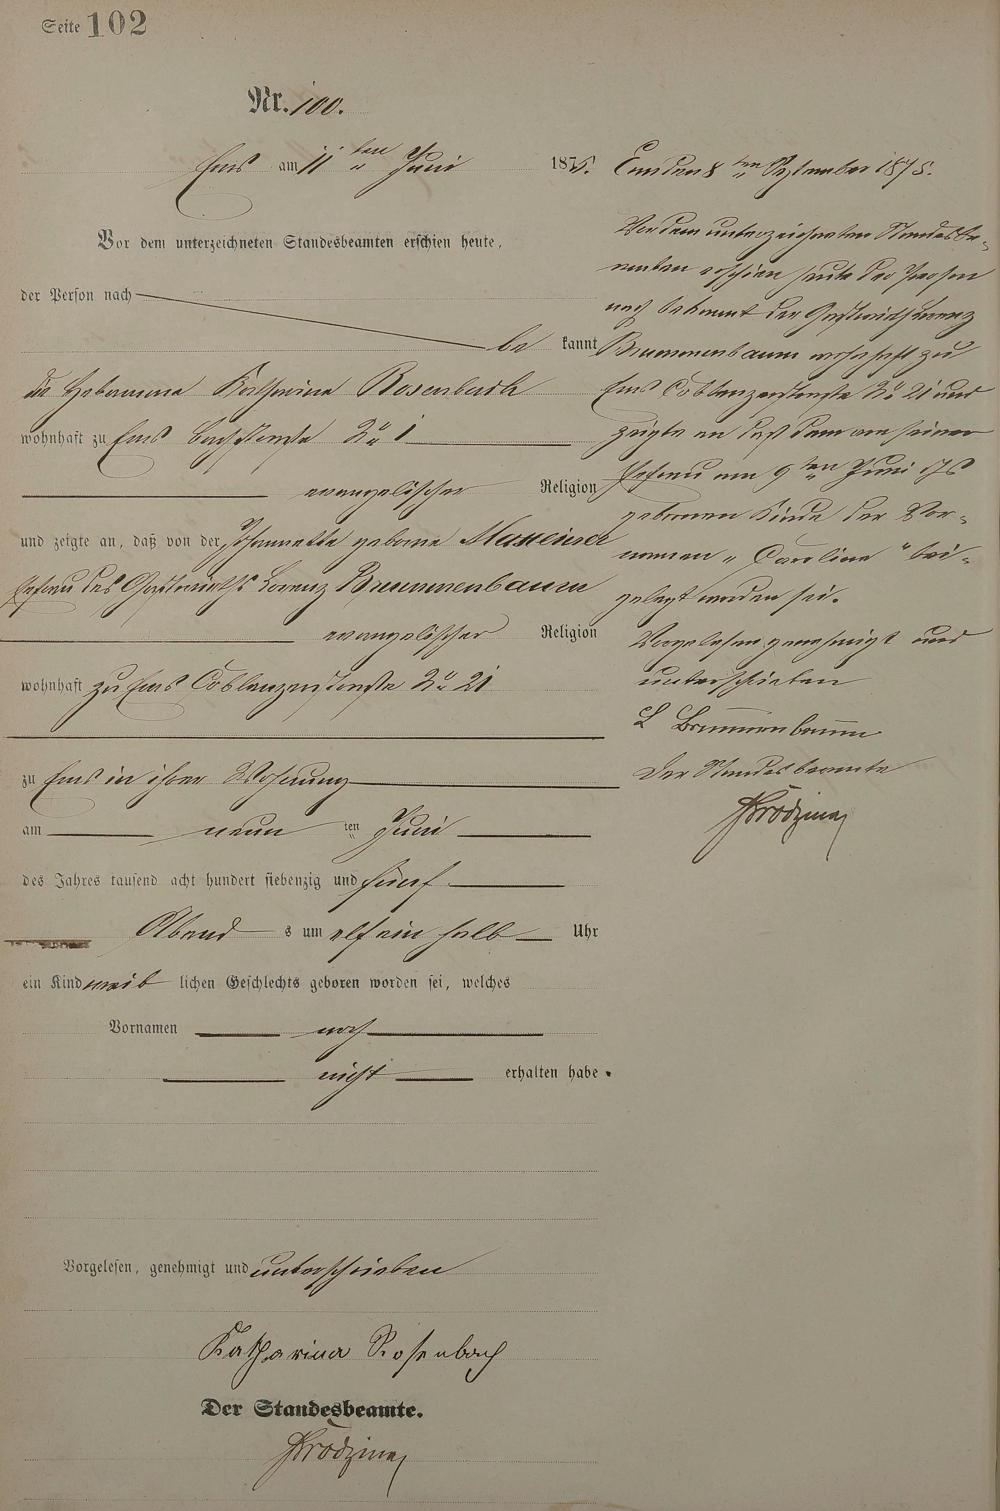 Seite 102
Nr. 100.
Ems am 11 ten Juni 1875.
Vor dem unterzeichneten Standesbeamten erschien heute,
der Person nach
be kannt
die Hebamme Katharina Rosenbach
wohnhaft zu Ems Bachstraße No 1
evangelischer Religion
und zeigte an, daß von der Johannette geborne
Ehefrau des Gastwirths Lorenz Brummenbaum
evangelischer Religion
wohnhaft zu Ems Coblenzerstraße No 21
zu Ems in ihrer Wohnung
am neun ten Juni
des Jahres tausend acht hundert siebenzig und fünf
Abend s um elf ein halb Uhr
ein Kind weib lichen Geschlechts geboren worden sei, welches
Vornamen noch
nicht erhalten habe.
Vorgelesen, genehmigt und unterschrieben
Katharina Rosenbach
Der Standesbeamte.
Ems den 8 ten September 1875.
Vor dem unterzeichneten Standesbe-
amten erschien heute der Person
nach bekannt der Gastwirth Lorenz
Brummenbaum wohnhaft zu
Ems Coblenzerstraße No 21 und
zeigte an daß dem von seiner
Ehefrau am 9 ten Juni d Js
gebornen Kinde der Vor-
namen „Caroline“ bei-
gelegt worden sei.
Vorgelesen genehmigt und
unterschrieben
L Brummenbaum
Der Standesbeamte